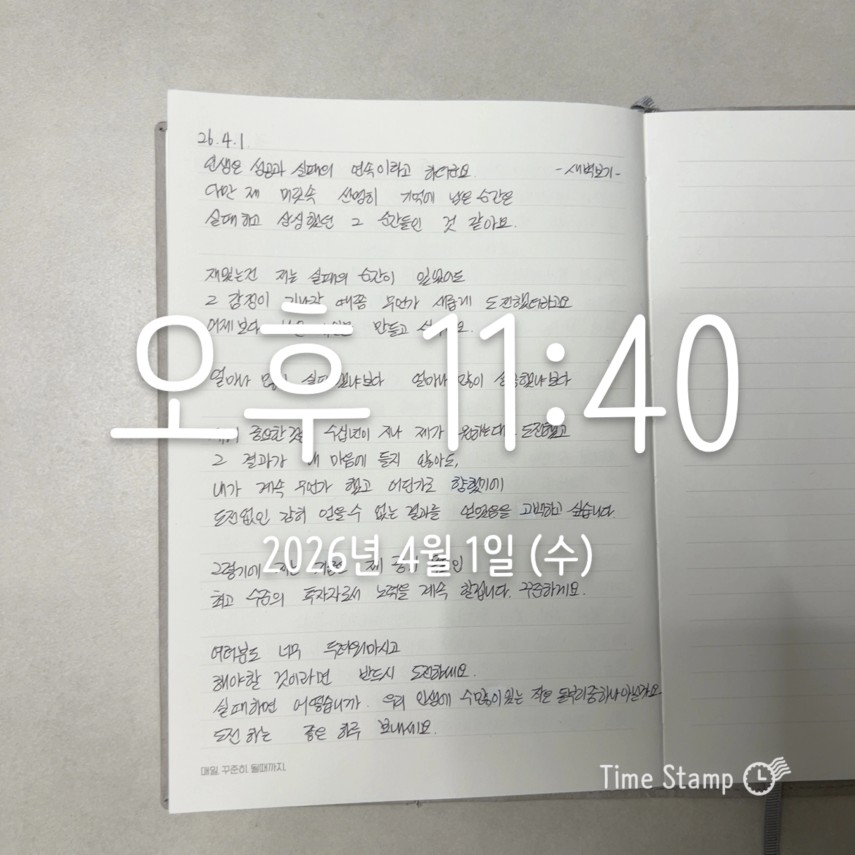 26.4.1.
인생은 성공과 실패의 연속이라고 하더군요. -새벽보기-
다만 제 머릿속 선명히 기억에 남은 순간은
실패하고 상심했던 그 순간들인 것 같아요.
재밌는건 저는 실패의 순간이 있었어도
그 감정이 지나갈 때쯤 무언가 새롭게 도전했더라고요
어제보다 만들고
오후 11:40
얼마나 많이 실패 했냐보다 얼마나 많이 했냐보다
중요한것은 수십년이 지나 제가 원하는대로 도전했고
그 결과가 내 마음에 들지 않아도,
내가 계속 무언가 했고 어딘가로 향했기에
도전없인 감히 얻을 수 없는 결과를 얻었음을 고백하고 싶습니다.
2026년 4월 1일 (수)
그렇기에 저는 제
최고 수준의 투자자로서 노력을 계속 할겁니다. 꾸준하게요.
여러분도 너무 두려워마시고
해야할 것이라면 반드시 도전하세요.
실패하면 어떻습니까. 우리 인생에 수많이 있는 작은 돌부리중하나 아닌가요
도전 하는 좋은 하루 보내세요.
매일, 꾸준히, 될때까지.
Time Stamp